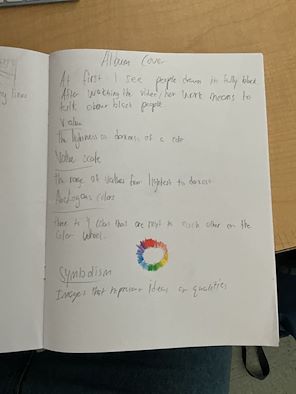 Album Cover
At first I see people drawn in fully black
After watching the video, her work means to
talk about black people
Value
the lightness or darkness of a color
Value scale
the range of values from lightest to darkest
Analogous colors
three to 4 colors that are next to each other on the
color wheel.
Symbolism
Images that represent Ideas or qualities